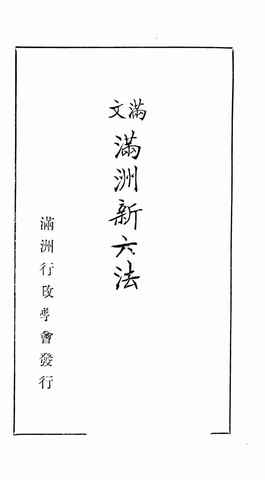 滿文
滿洲新六法
滿洲行政學會發行